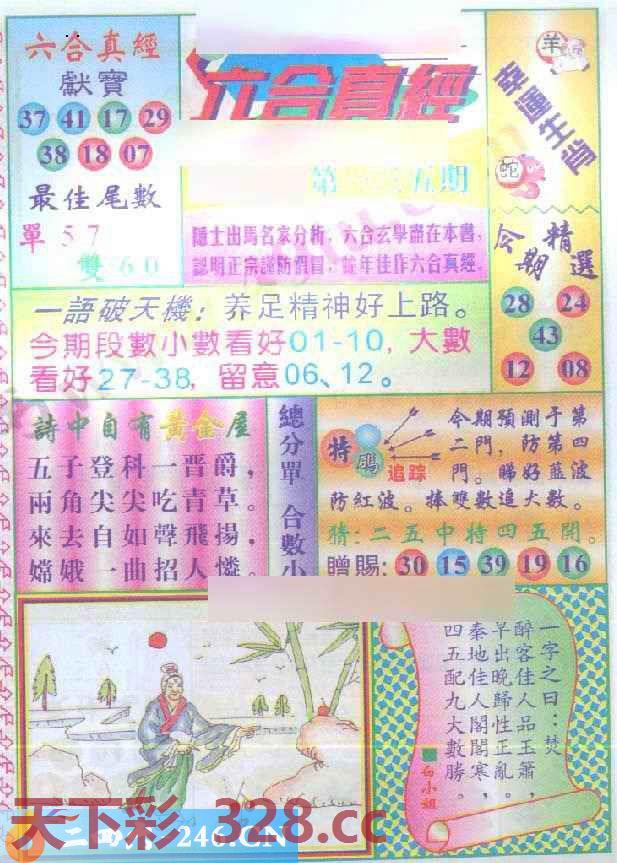 六合真經
獻寶
37 41 17 29
38 18 07
最佳尾數
單57
雙60
六合真經
五期
隱士出馬名家分析,六合玄學盡在本書,
認明正宗謹防假冒,蛇年佳作六合真經.
羊
幸運生肖
蛇
今期精選
28 24
43
12 08
一語破天機:養足精神好上路。
今期段數小數看好01-10,大數
看好27-38,留意06、12。
詩中自有黃金屋
五子登科一晋爵,
兩角尖尖吃青草。
來去自如聲飛揚,
嫦娥一曲招人憐。
總分單 合數小
特碼
追踪
今期預測于第
二門,防第四
門。睇好藍波
防紅波。捧雙數追大數。
猜:二五中特四五開。
贈賜:30 15 39 19 16
一字之曰:焚
醉客佳人品玉簫,
早出晚歸性正亂。
秦地佳人閣閣寒,
四五配九大數勝。
白小姐
天下彩 328.cc
246.CN